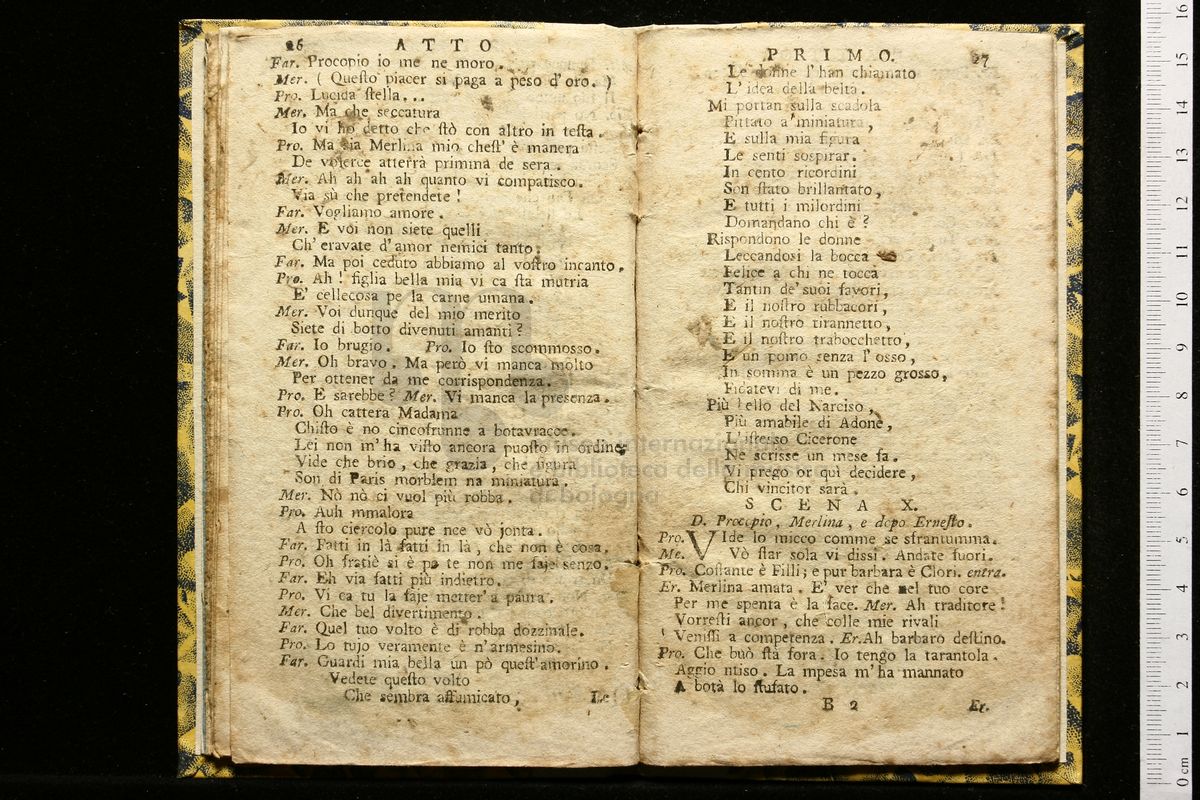 26 ATTO
Far. Procopio io me ne moro.
Mer. ( Questo piacer si paga a peso d'oro. )
Pro. Lucida stella...
Mer. Ma che seccatura
Io vi ho detto che stò con altro in testa.
Pro. Ma sia Merlina mio chest' è manera
De volerce atterrà primma de sera.
Mer. Ah ah ah ah quanto vi compatisco.
Via sù che pretendete!
Far. Vogliamo amore.
Mer. E voi non siete quelli
Ch' eravate d'amor nemici tanto;
Far. Ma poi ceduto abbiamo al vostro incanto.
Pro. Ah! figlia bella mia vi ca sta mutria
E' cellecosa pe la carne umana.
Mer. Voi dunque del mio merito
Siete di botto divenuti amanti?
Far. Io brugio. Pro. Io sto scommosso.
Mer. Oh bravo. Ma però vi manca molto
Per ottener da me corrispondenza.
Pro. E sarebbe? Mer. Vi manca la presenza.
Pro. Oh cattera Madama
Chisto è no cincofrunne a botavracce.
Lei non m'ha visto ancora puosto in ordine
Vide che brio, che grazia, che figura
Son di Paris morblem na miniatura.
Mer. Nò nò ci vuol più robba.
Pro. Auh mmalora
A sto ciercolo pure nce vò jonta.
Far. Fatti in là fatti in là, che non è cosa.
Pro. Oh fratiè si è pe te non me faje senzo.
Far. Eh via fatti più indietro.
Pro. Vi ca tu la faje metter' a paura.
Mer. Che bel divertimento.
Far. Quel tuo volto è di robba dozzinale.
Pro. Lo tujo veramente è n'armesino.
Far. Guardi mia bella un pò quest'amorino.
Vedete questo volto
Che sembra affumicato,
Le
PRIMO. 27
Le donne l'han chiamato
L' idea della belta.
Mi portan sulla scadola
Pittato a miniatura,
E sulla mia figura
Le senti sospirar.
In cento ricordini
Son stato brillantato,
E tutti i milordini
Domandano chi è?
Rispondono le donne
Leccandosi la bocca
Felice a chi ne tocca
Tantin de' suoi favori,
E il nostro rubbacori,
E il nostro tirannetto,
E il nostro trabocchetto,
E un pomo senza l'osso,
In somma è un pezzo grosso,
Fidatevi di me.
Più bello del Narciso,
Più amabile di Adone,
L'istesso Cicerone
Ne scrisse un mese fa.
Vi prego or quì decidere,
Chi vincitor sarà.
SCENA X.
D. Procopio, Merlina, e dopo Ernesto.
Pro. VIde lo micco comme se sfrantumma.
Me. Vò star sola vi dissi. Andate fuori.
Pro. Costante è Filli; e pur barbara è Clori. entra.
Er. Merlina amata. E' ver che nel tuo core
Per me spenta è la face. Mer. Ah traditore!
Vorresti ancor, che colle mie rivali
Venissi a competenza. Er. Ah barbaro destino.
Pro. Che buò stà fora. Io tengo la tarantola.
Aggio ntiso. La mpesa m'ha mannato
A botà lo stufato.
B 2 Er.